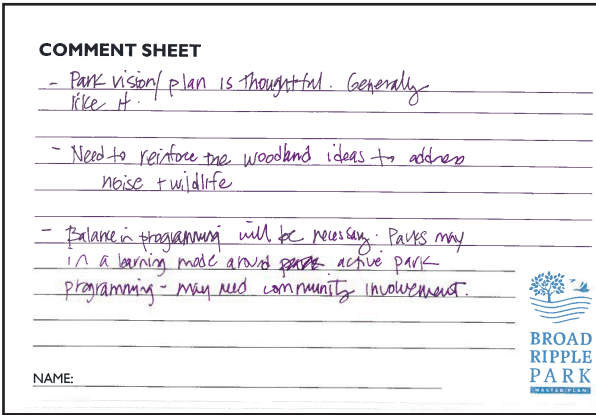 COMMENT SHEET
- Park vision/plan is thoughtful. Generally
like it.
- Need to reinforce the woodland ideas to address
noise + wildlife
- Balance in programming will be necessary. Parks may
in a learning mode around active park
programming - may need community involvement.
NAME:
BROAD
RIPPLE
PARK
MASTER PLAN